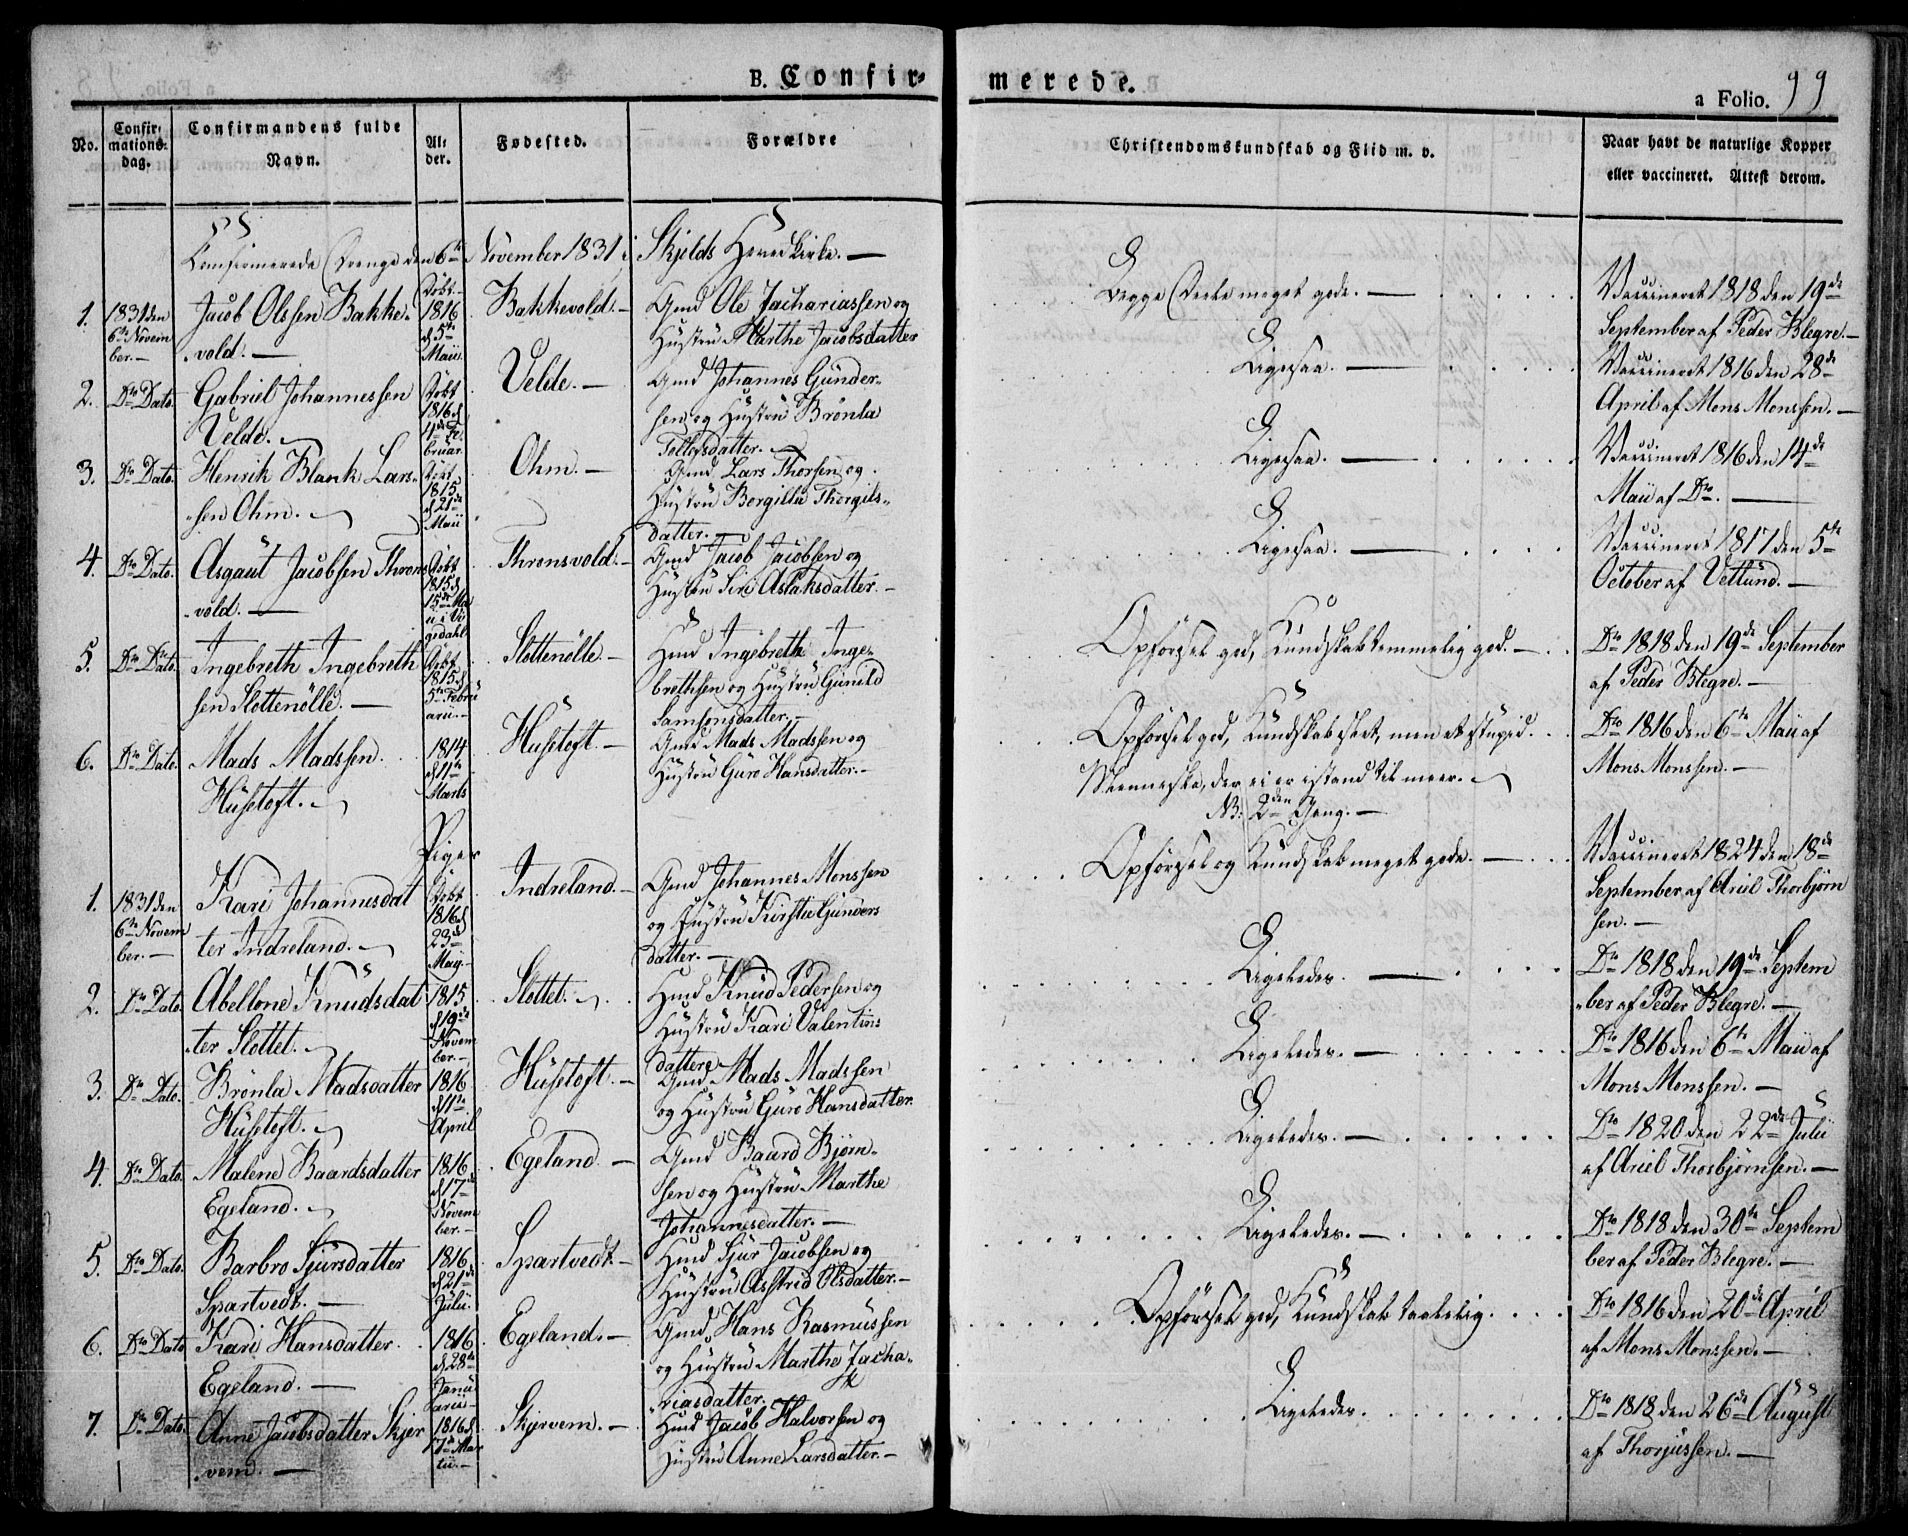 B. Confir- merede.
a Folio. 99
No. Confir- mations- dag. Confirmandens fulde Navn. Al- der. Fødested. Forældre Christendomskundskab og Flid m. v. Naar havt de naturlige Kopper eller vaccineret. Attest derom.
Confirmerede Drenge den 6te November 1831 i Skjolds Hovedkirke. —
1. 1831 den 6te Novem ber. —
Jacob Olssen Bakke-
vold. —
Døbt 1816 d 5te Maii
Bakkevold. —
Gmd Ole Zachariassen og
Hustrü Marthe Jacobsdatter
Begge Deele meget gode. —
Vaccineret 1818 den 19de
September af Peder Blegre. —
2. Do Dato.
Gabriel Johannessen
Velde. —
Døbt 1816 d 4de Fe- brüar
Velde. —
Gmd Johannes Günder-
sen og Hustrü Brönla
Tollogsdatter. —
Ligesaa. —
Vaccineret 1816 den 28de
April af Mons Monssen. —
3. Do Dato.
Henrik Blank Lars-
sen Ohm. —
Døbt 1815 d 21de Maii
Ohm. —
Gmd Lars Thorsen og
Hustrü Borgilla Thorgils-
datter. —
Ligesaa. —
Vaccineret 1816 den 14de
Maii af Do. —
4. Do Dato.
Asgaüt Jacobsen Throns
vold. —
Døbt 1815 d 15de Ma ii i Vi gedahl
Thronsvold. —
Gmd Jacob Jacobsen og
Hustrü Siri Aslaksdatter. —
Ligesaa. —
Vaccineret 1817 den 5te
October af Vetlünd. —
5. Do Dato.
Ingebreth Ingebreth
sen Slottenölle. —
Døbt 1815 d 5te Febrü arii. —
Slottenölle. —
Hmd Ingebreth Inge-
brethsen og Hustrü Günild
Samsonsdatter. —
Opførsel god, Kündskab temmelig god. —
Do 1818 den 19de September
af Peder Blegre. —
6. Do Dato.
Mads Madssen
Hüsetoft. —
1814 d 11te Marts
Hüsetoft. —
Gmd Mads Madssen og
Hustrü Güro Hansdatter. —
Opførsel god, Kündskab slet, men et stüpid
Menneske, der ei er istand til meer. —
NB: 2den Gang. —
Do 1816 den 6te Maii af
Mons Monssen. —
Piger
1. 1831 den 6te Novem ber. —
Kari Johannesdat
ter Indreland. —
Døbt 1816 d 23de Maij
Indreland. —
Gmd Johannes Monssen
og Hustrü Kirstie Günders
datter. —
Opførsel og Kündskab meget gode. —
Vaccineret 1824 den 18de
September af Ariel Thorbjørn
sen. —
2. Do Dato.
Abellone Knüdsdat
ter Slottet. —
1815 d 19de Novem ber. —
Slottet. —
Hmd Knüd Pedersen og
Hustrü Kari Valentins
datter
Ligeledes. —
Do 1818 den 19de Septem
ber af Peder Blegre. —
3. Do Dato.
Brönla Madsdatter
Hüsetoft. —
1816 d 11te April
Hüsetoft. —
Gmd Mads Madssen
og Hustrü Güro Hansdatter.
Ligeledes. —
Do 1816 den 6te Maii af
Mons Monssen. —
4. Do Dato.
Malene Baardsdatter
Egeland. —
1816 d 17de Novem ber. —
Egeland. —
Gmd Baard Bjørn-
sen og Hustrü Marthe
Johannesdatter. —
Ligeledes. —
Do 1820 den 22de Jülii
af Ariel Thorbjørnsen. —
5. Do Dato.
Barbro Sjursdatter
Spartvedt. —
1816 d 21de Jülii.
Spartvedt. —
Hmd Sjür Jacobsen og
Hustrü Asstrid Olsdatter. —
Ligeledes. —
Do 1818 den 30te Septem
ber af Peder Blegre. —
6. Do Dato
Kari Hansdatter
Egeland. —
1816 d 28de Janü arii —
Egeland. —
Gmd Hans Rasmüssen
og Hustrü Marthe Zacha-
riasdatter.
Opførsel god, Kündskab taalelig.
Do 1816 den 20de April
af Mons Monssen. —
7. Do Dato.
Anne Jacobsdatter Skjer
vem. —
1816 d 7de Mar tii. —
Skjervem. —
Hmd Jacob Halvorsen og
Hustrü Anne Larsdatter. —
Ligeledes
Do 1818 den 26de Aügüst
af Thorjüssen. —